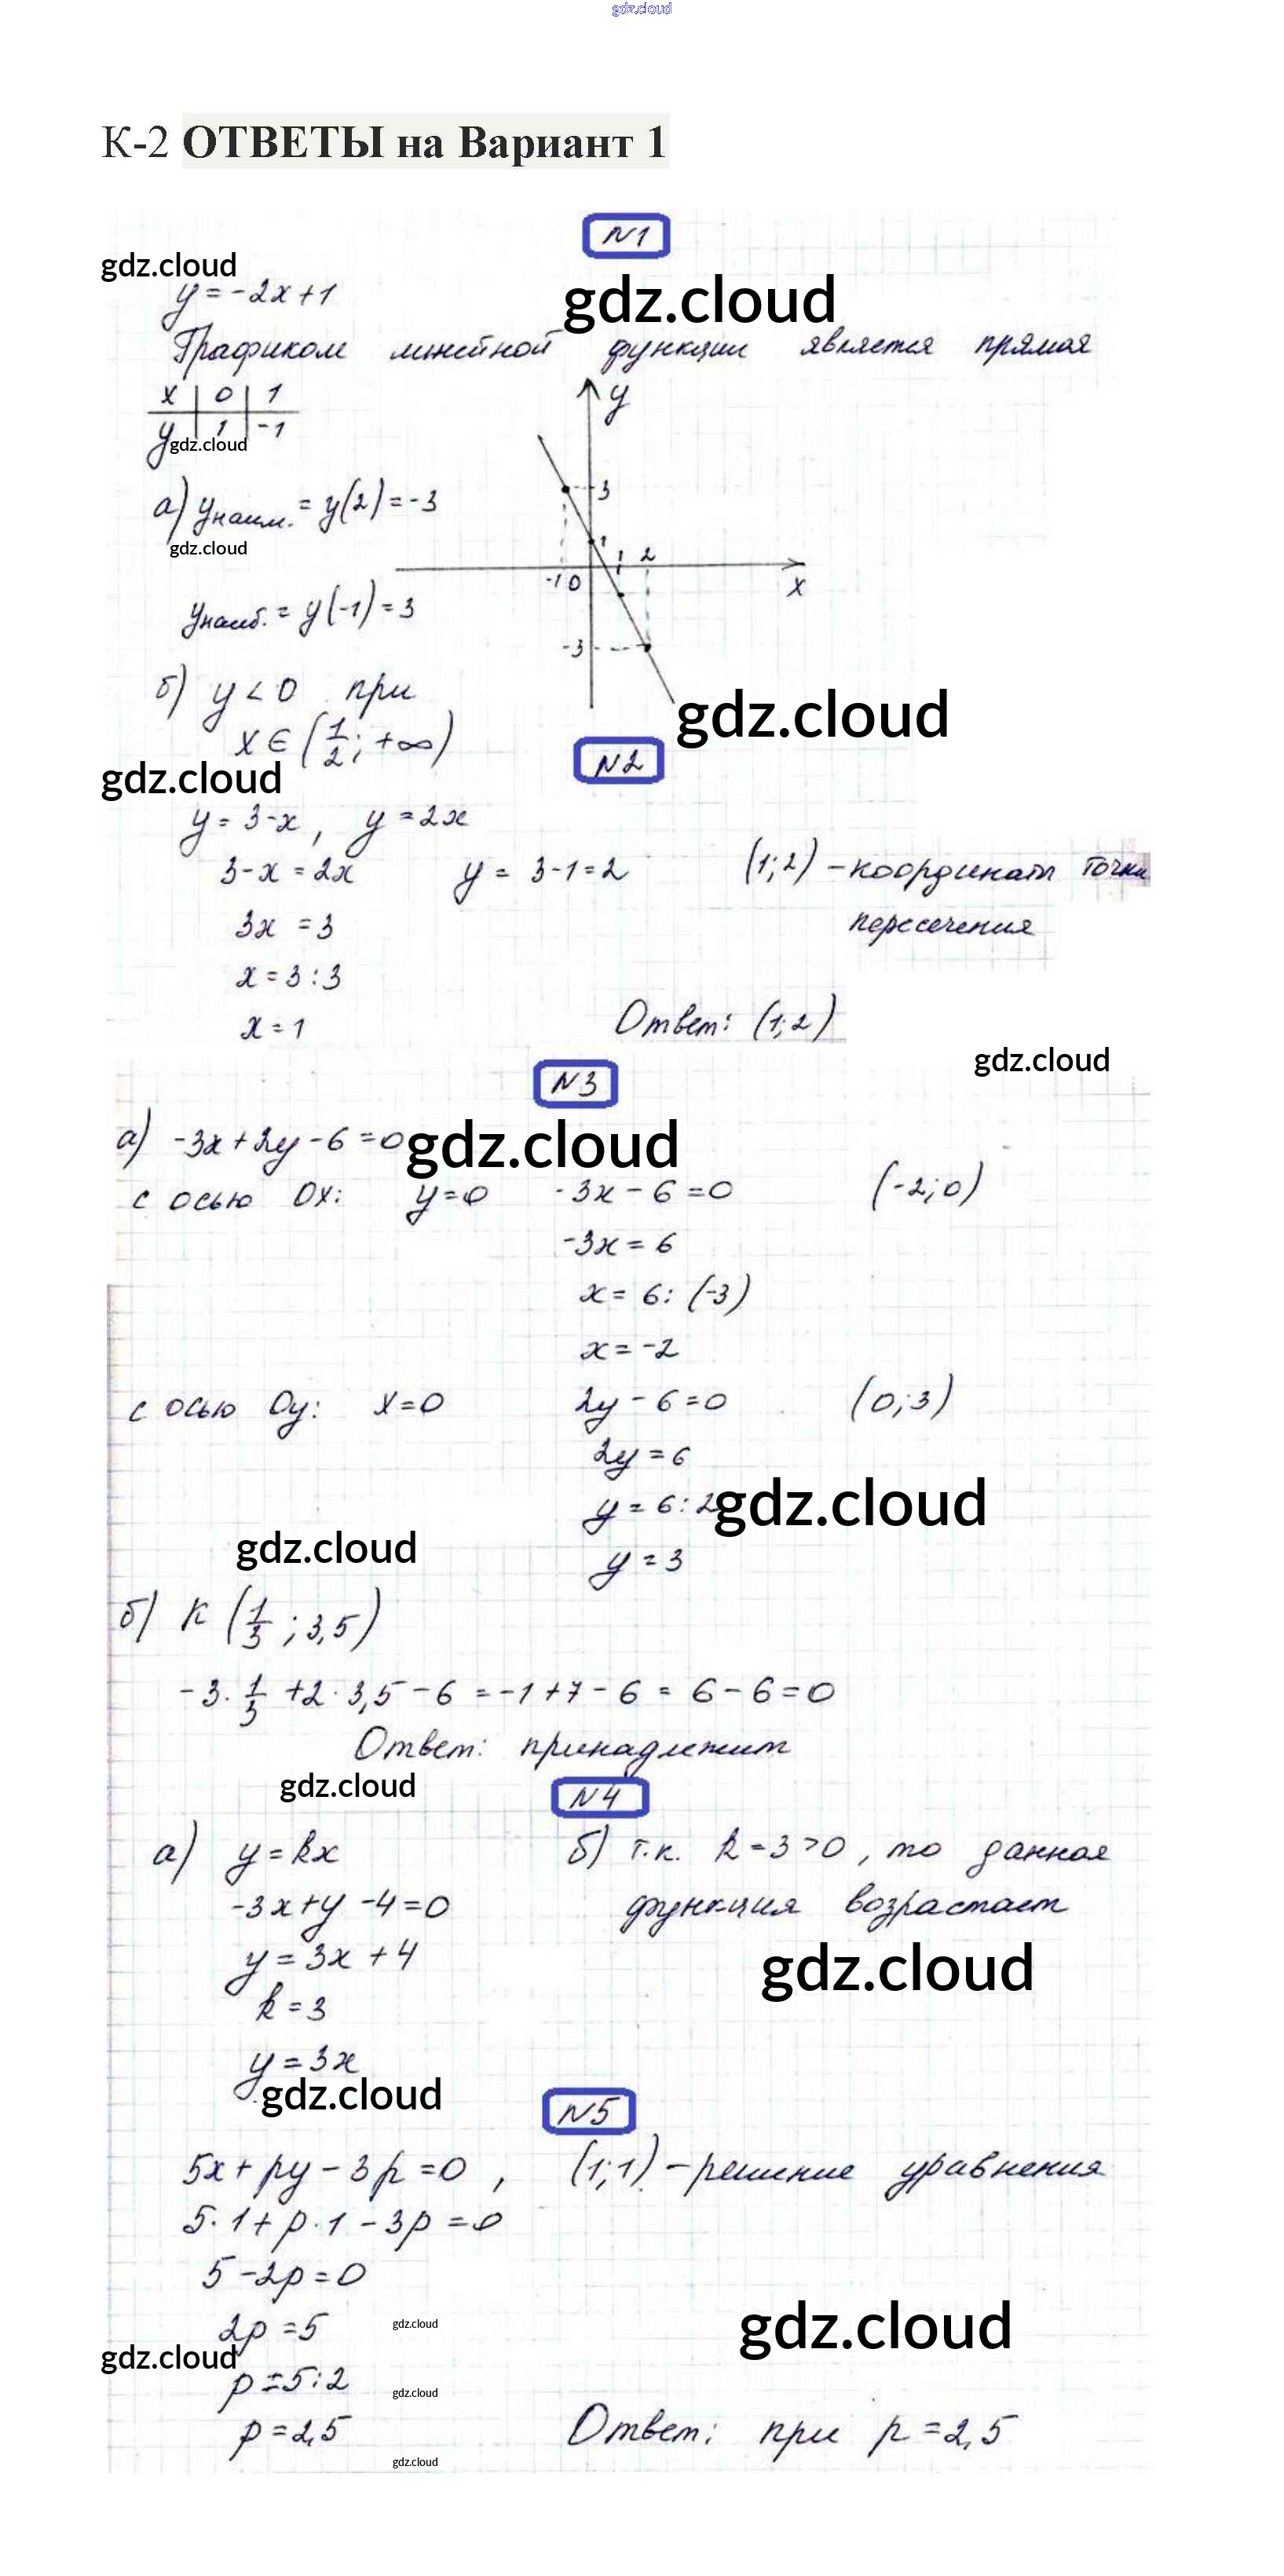 gdz.cloud
К-2 ОТВЕТЫ на Вариант 1
N1
gdz.cloud
y = -2x + 1
gdz.cloud
Графиком линейной функции является прямая
x | 0 | 1
y | 1 | -1
gdz.cloud
y
3
1
1 2
-1 0
x
-3
а) yнаим. = y(2) = -3
gdz.cloud
yнаиб. = y(-1) = 3
б) y < 0 при
x ∈ (1/2; +∞)
gdz.cloud
N2
gdz.cloud
y = 3-x, y = 2x
3-x = 2x y = 3-1=2 (1;2) – координаты точки
3x = 3 пересечения
x = 3 : 3
x = 1 Ответ: (1;2)
gdz.cloud
N3
а) -3x+2y-6=0
gdz.cloud
с осью Ox: y=0 -3x-6=0 (-2;0)
-3x = 6
x = 6: (-3)
x = -2
с осью Oy: x=0 2y-6=0 (0;3)
2y = 6
y = 6:2
gdz.cloud
gdz.cloud
y = 3
б) K (1/3; 3,5)
-3·1/3 +2·3,5-6 = -1+7-6 = 6-6=0
Ответ: принадлежит
gdz.cloud
N4
а) y = kx б) т.к. k=3>0, то данная
-3x+y-4=0 функция возрастает
y = 3x+4
gdz.cloud
k = 3
y = 3x
gdz.cloud
N5
5x+py-3p=0, (1;1) – решение уравнения
5·1+p·1-3p=0
5-2p=0
2p=5
gdz.cloud
gdz.cloud
gdz.cloud
p=5:2
gdz.cloud
p=2,5 Ответ: при p=2,5
gdz.cloud